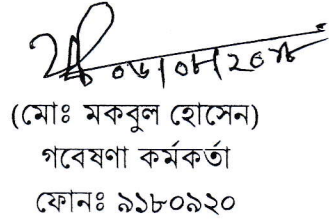 ০৬/০৮/২০১৮
(মোঃ মকবুল হোসেন)
গবেষণা কর্মকর্তা
ফোনঃ ৯১৮০৯২০